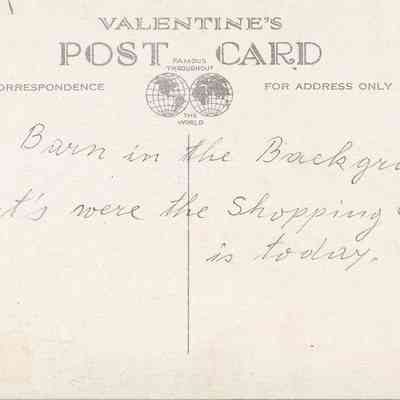 VALENTINE'S
POST CARD
FAMOUS
THROUGHOUT
THE
WORLD
FOR ADDRESS ONLY
Barn in the
were the Shopping
is today.